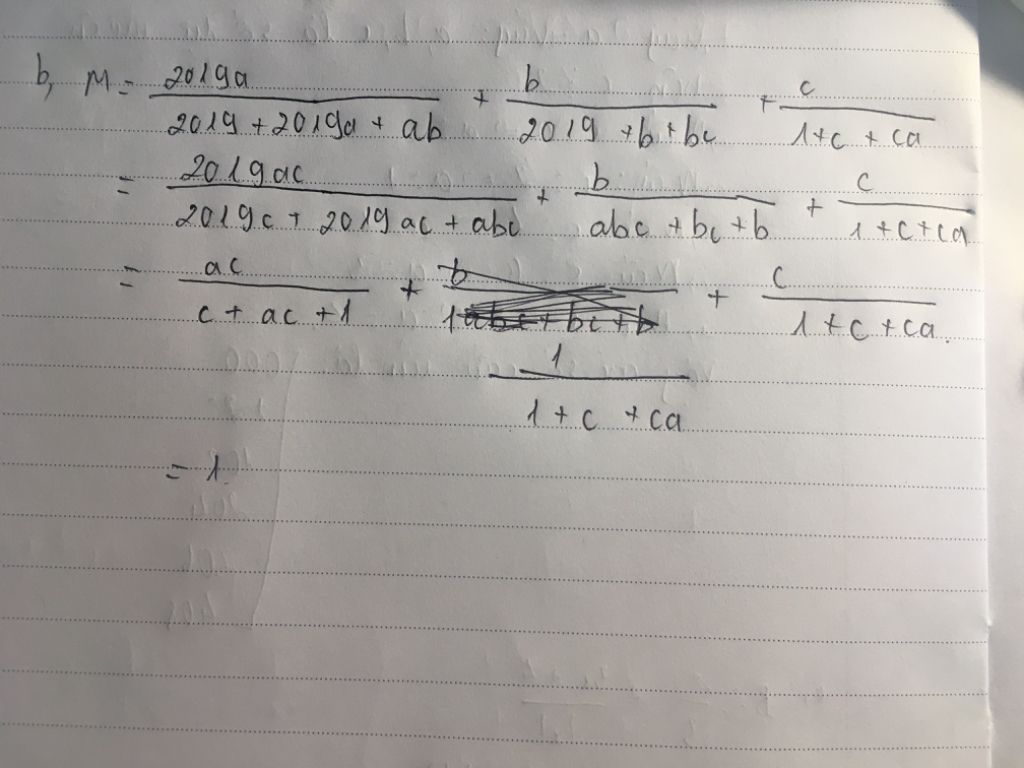 b, M = 2019a / (2019 + 2019a + ab) + b / (2019 + b + bc) + c / (1 + c + ca)
= 2019ac / (2019c + 2019ac + abc) + b / (abc + bc + b) + c / (1 + c + ca)
= ac / (c + ac + 1) + + c / (1 + c + ca)
1 / (1 + c + ca)
= 1